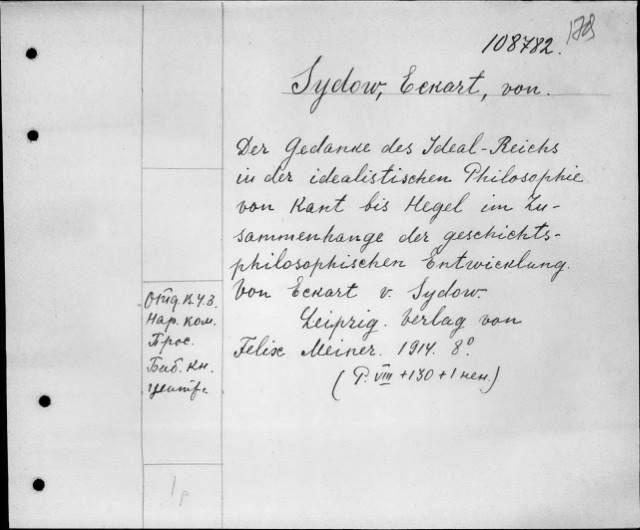 108782.
Sydow, Eckart, von.
Der Gedanke des Ideal-Reichs
in der idealistischen Philosophie
von Kant bis Hegel im Zu-
sammenhange der geschichts-
philosophischen Entwicklung.
Von Eckart v. Sydow.
Leipzig. Verlag von
Felix Meiner. 1914. 8°.
(P. VIII + 130 + 1 нен.)
Отд. В.У.З.
Нар. ком.
Прос.
Биб. кн.
1 р